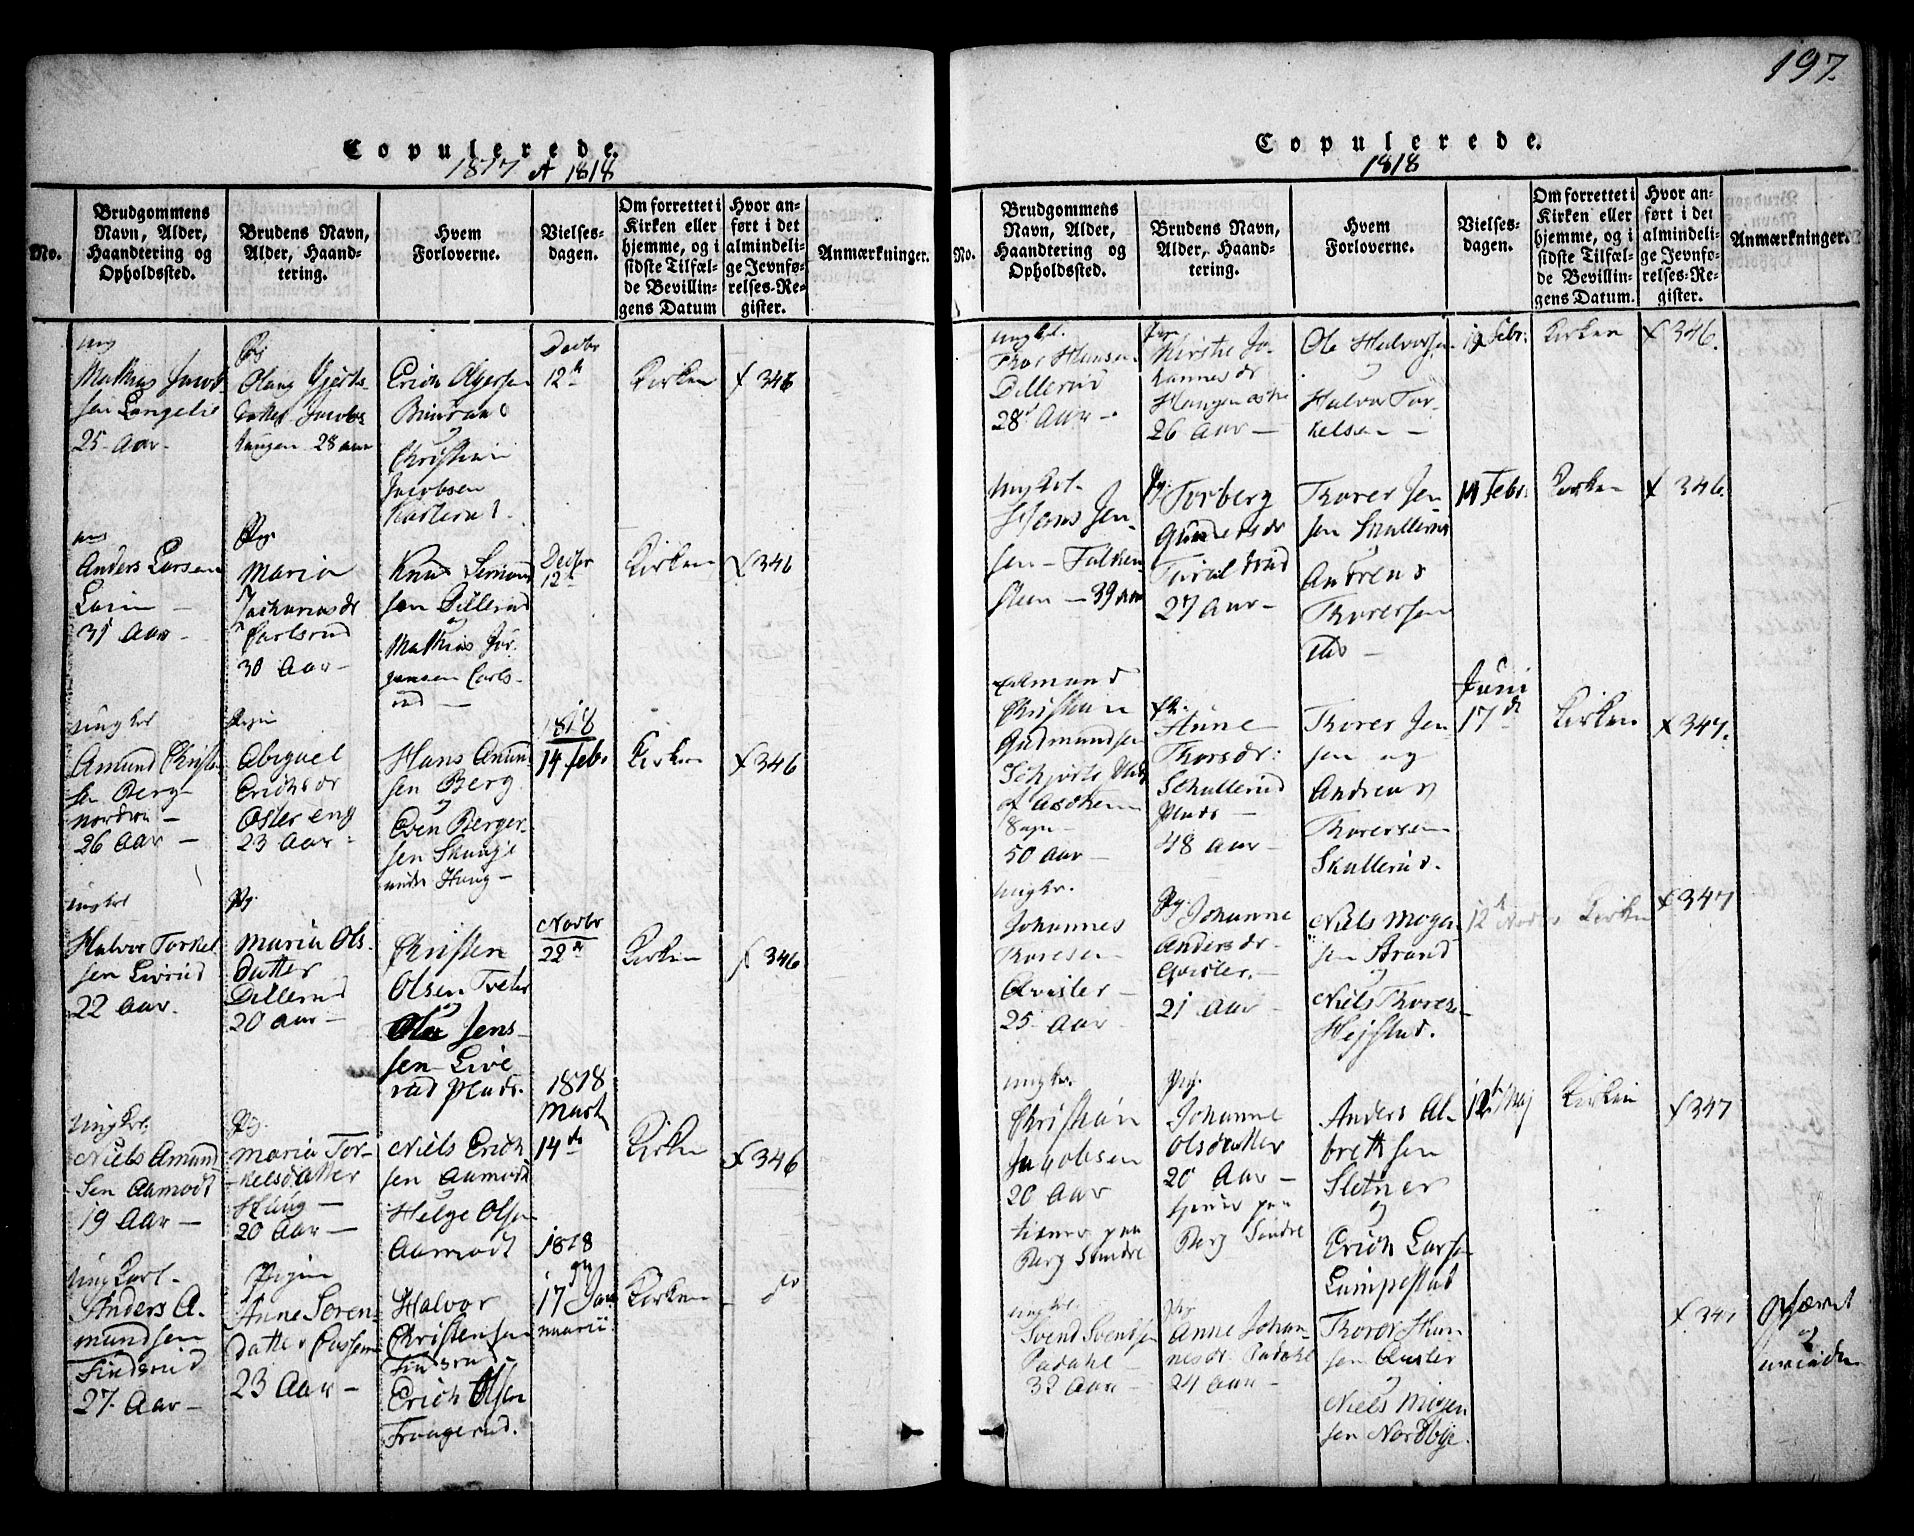 197.
Copulerede.
1817 A 1818
No.
Brudgommens Navn, Alder, Haandtering og Opholdssted.
Brudens Navn, Alder, Haandtering.
Hvem Forloverne.
Vielses-dagen.
Om forrettet i Kirken eller hjemme, og i sidste Tilfælde Bevillingens Datum
Hvor anført i det almindelige Jevnførelses-Register.
Anmærkninger.
ung
Mathias Jacob-
sen Langelie
25 Aar
Pig
Olaug Gjerts-
datter Jacobs-
haugen 28 aar
Erich Olgersen
og
Christian
Jacobsen
Decbr
12te
Kirken
f 346
Anders Larsen
31 Aar
Pig.
Maria
Zachariasdr
Carlsrud
30 Aar
Knud
sen Dillerud
og
Mathias Jør-
gensen Carls-
rud
Decbr
12te
Kirken
f 346
ungkrl
Amund Christen-
sen Berg
nordre
26 Aar
Pigen
Abiguel
Erichsdr
Øster eng
23 Aar
Hans Amund-
sen Berg
og
Even Berger-
sen Skaug
under Haug
1818
14 febr
Kirken
f 346
ungkrl
Halvor Torkel-
sen Livrud
22 Aar
Pig.
Maria Ols-
datter
Dillerud
20 aar
Christen
Olsen Tveter
og
Ole Jens-
sen Live-
rud Plads.
Novbr
22de
Kirken
f 346
ungkrl.
Niels Amund-
sen Aamodt
19 Aar
Pig.
Maria Tor-
kelsdatter
Haug
20 Aar
Niels Erich-
sen Aamodt
og
Helge Olsen
Aamodt
1818
Marts
14de
Kirken
f 346
ungkarl
Anders A-
mundsen
Findsrud
27 Aar
Pigen
Anne Soren-
datter
23 Aar
Halvor
Christensen
Findsrud
Erich Olsen
Fraagerud.
1818
17 Janu-
uarii
Kirken
do
Copulerede.
1818
No.
Brudgommens Navn, Alder, Haandtering og Opholdssted.
Brudens Navn, Alder, Haandtering.
Hvem Forloverne.
Vielses-dagen.
Om forrettet i Kirken eller hjemme, og i sidste Tilfælde Bevillingens Datum.
Hvor anført i det almindelige Jevnførelses-Register.
Anmærkninger.
ungkl.
Thor Hansen
Dillerud
28 Aar
Pige
Kirstie Jo-
hannesdr
Haugen østre
26 Aar
Ole Halvorsen
Halvor Tor-
kelsen
19 Febr:
Kirken
f 346.
ungkrl.
Hans Jen-
sen Falken-
steen 39 aar
Pig. Torberg
Gundersdr
Taraldrud
27 Aar
Thorer Jen-
sen Skullerud
Andreas
Thoresen
14 Febr.
Kirken
f 346.
Enkemand
Christian
Gudmundsen
50 Aar
Anne
Thorsdr:
Schullerud
Plads
48 aar
Thorer Jen-
sen og
Andreas
Thorersen
Skullerud.
Juni
17de
Kirken
f 347.
ungkr.
Johannes
Thoresen
Qvisler
25 Aar
Pig. Johanne
Andersdr.
Qvisler.
21 Aar
Niels Mogen-
sen Brand
og
Niels Thores-
Hejstad.
12te Novbr
Kirken
f 347
ungkr.
Christian
Jacobsen
20 Aar
tiener paa
Berg Søndre
Pig.
Johanne
Olsdatter
20 Aar
tiener paa
Berg Søndre
Anders Al-
brethsen
Sletner
og
Erich Larsen
Lumpestad
12te Maj
Kirken
f 347
ungkrl.
Svend Svendsen
Padahl
32 Aar
Pig
Anne Johan-
nesdr. Padahl
24 Aar
Thorer Han-
sen Qvisler
og
Niels Mogen-
sen Nordbye.
f. 347
og